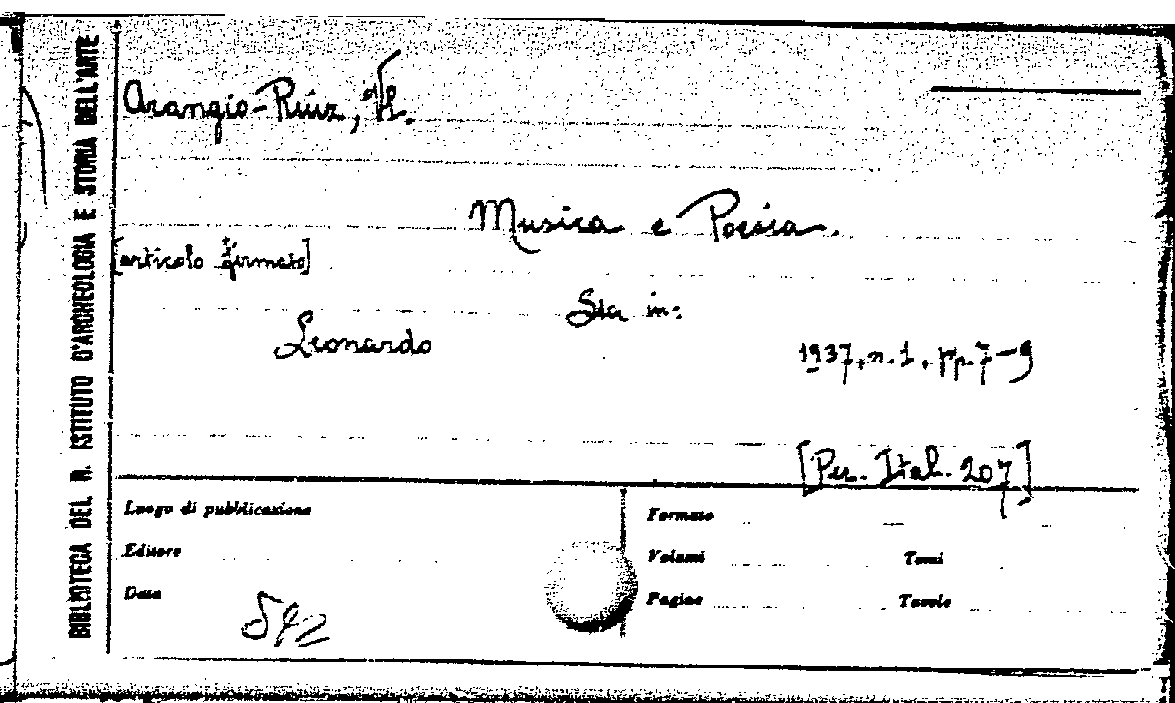 BIBLIOTECA DEL R. ISTITUTO D'ARCHEOLOGIA E STORIA DELL'ARTE
Arangio-Ruiz, V.
Musica e Poesia.
[articolo firmato]
Sta in:
Leonardo
1937, n. 1, pp. 7-9
[Per. Ital. 207]
Luogo di pubblicazione
Formato
Editore
Volumi Tomi
Data
Pagine Tavole